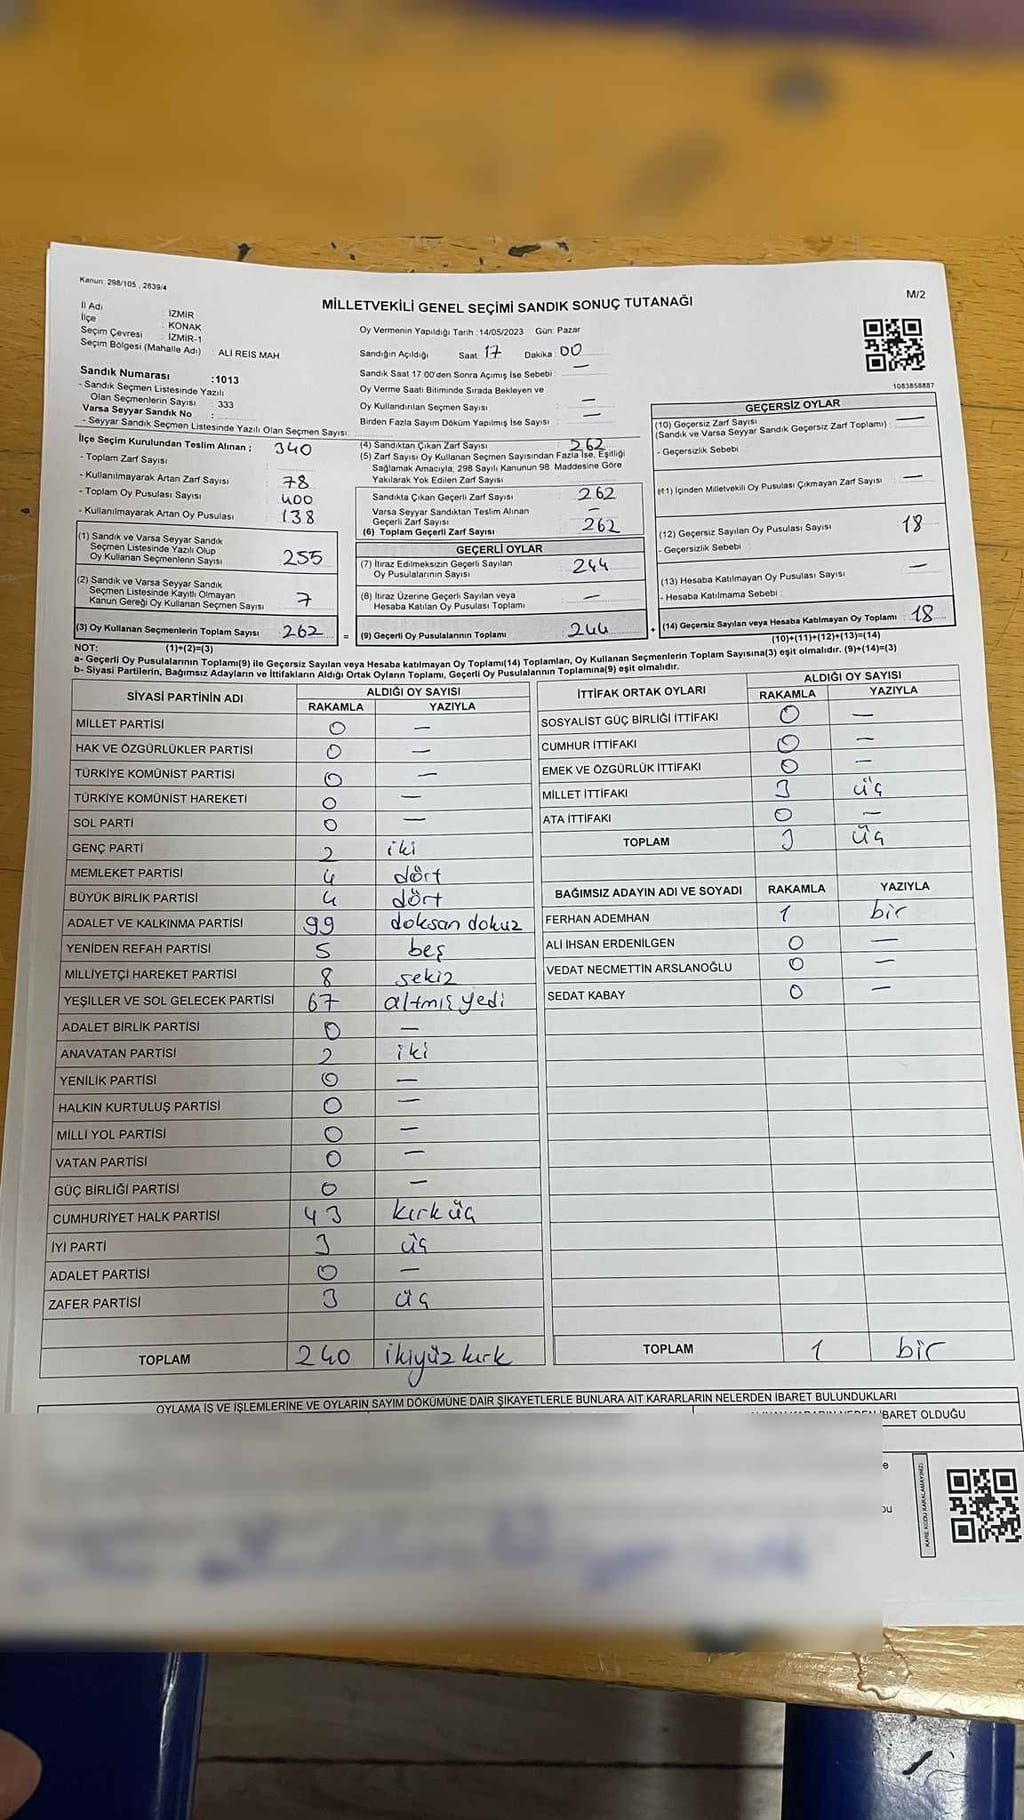 Kanun: 298/105 , 2839/4
MİLLETVEKİLİ GENEL SEÇİMİ SANDIK SONUÇ TUTANAĞI
M/2
İl Adı : İZMİR
İlçe : KONAK
Seçim Çevresi : İZMİR-1
Seçim Bölgesi (Mahalle Adı) : ALİ REİS MAH
Sandık Numarası :1013
- Sandık Seçmen Listesinde Yazılı
Olan Seçmenlerin Sayısı : 333
Varsa Seyyar Sandık No :
- Seyyar Sandık Seçmen Listesinde Yazılı Olan Seçmen Sayısı:
Oy Vermenin Yapıldığı Tarih :14/05/2023 Gün: Pazar
Sandığın Açıldığı Saat: 17 Dakika: 00
Sandık Saat 17:00'den Sonra Açımış İse Sebebi : —
Oy Verme Saati Bitiminde Sırada Bekleyen ve
Oy Kullandırılan Seçmen Sayısı —
Birden Fazla Sayım Döküm Yapılmış İse Sayısı : —
1083858887
İlçe Seçim Kurulundan Teslim Alınan ; 340
- Toplam Zarf Sayısı :
- Kullanılmayarak Artan Zarf Sayısı : 78
- Toplam Oy Pusulası Sayısı : 400
- Kullanılmayarak Artan Oy Pusulası : 138
(1) Sandık ve Varsa Seyyar Sandık
Seçmen Listesinde Yazılı Olup
Oy Kullanan Seçmenlerin Sayısı 255
(2) Sandık ve Varsa Seyyar Sandık
Seçmen Listesinde Kayıtlı Olmayan
Kanun Gereği Oy Kullanan Seçmen Sayısı 7
(3) Oy Kullanan Seçmenlerin Toplam Sayısı : 262 =
(4) Sandıktan Çıkan Zarf Sayısı 262
(5) Zarf Sayısı Oy Kullanan Seçmen Sayısından Fazla İse, Eşitliği
Sağlamak Amacıyla, 298 Sayılı Kanunun 98. Maddesine Göre
Yakılarak Yok Edilen Zarf Sayısı
Sandıkta Çıkan Geçerli Zarf Sayısı 262
Varsa Seyyar Sandıktan Teslim Alınan
Geçerli Zarf Sayısı —
(6) Toplam Geçerli Zarf Sayısı 262
GEÇERLİ OYLAR
(7) İtiraz Edilmeksizin Geçerli Sayılan
Oy Pusulalarının Sayısı 244
(8) İtiraz Üzerine Geçerli Sayılan veya
Hesaba Katılan Oy Pusulası Toplamı —
(9) Geçerli Oy Pusulalarının Toplamı 244 +
GEÇERSİZ OYLAR
(10) Geçersiz Zarf Sayısı
(Sandık ve Varsa Seyyar Sandık Geçersiz Zarf Toplamı) : —
- Geçersizlik Sebebi :
(11) İçinden Milletvekili Oy Pusulası Çıkmayan Zarf Sayısı : —
(12) Geçersiz Sayılan Oy Pusulası Sayısı 18
- Geçersizlik Sebebi :
(13) Hesaba Katılmayan Oy Pusulası Sayısı : —
- Hesaba Katılmama Sebebi :
(14) Geçersiz Sayılan veya Hesaba Katılmayan Oy Toplamı : 18
NOT: (1)+(2)=(3)
(10)+(11)+(12)+(13)=(14)
a- Geçerli Oy Pusulalarının Toplamı(9) ile Geçersiz Sayılan veya Hesaba katılmayan Oy Toplamı(14) Toplamları, Oy Kullanan Seçmenlerin Toplam Sayısına(3) eşit olmalıdır. (9)+(14)=(3)
b- Siyasi Partilerin, Bağımsız Adayların ve İttifakların Aldığı Ortak Oyların Toplamı, Geçerli Oy Pusulalarının Toplamına(9) eşit olmalıdır.
SİYASİ PARTİNİN ADI
ALDIĞI OY SAYISI
RAKAMLA YAZIYLA
MİLLET PARTİSİ 0 —
HAK VE ÖZGÜRLÜKLER PARTİSİ 0 —
TÜRKİYE KOMÜNİST PARTİSİ 0 —
TÜRKİYE KOMÜNİST HAREKETİ 0 —
SOL PARTİ 0 —
GENÇ PARTİ 2 iki
MEMLEKET PARTİSİ 4 dört
BÜYÜK BİRLİK PARTİSİ 4 dört
ADALET VE KALKINMA PARTİSİ 99 doksan dokuz
YENİDEN REFAH PARTİSİ 5 beş
MİLLİYETÇİ HAREKET PARTİSİ 8 sekiz
YEŞİLLER VE SOL GELECEK PARTİSİ 67 altmış yedi
ADALET BİRLİK PARTİSİ 0 —
ANAVATAN PARTİSİ 2 iki
YENİLİK PARTİSİ 0 —
HALKIN KURTULUŞ PARTİSİ 0 —
MİLLİ YOL PARTİSİ 0 —
VATAN PARTİSİ 0 —
GÜÇ BİRLİĞİ PARTİSİ 0 —
CUMHURİYET HALK PARTİSİ 43 kırk üç
İYİ PARTİ 3 üç
ADALET PARTİSİ 0 —
ZAFER PARTİSİ 3 üç
TOPLAM 240 ikiyüz kırk
İTTİFAK ORTAK OYLARI
ALDIĞI OY SAYISI
RAKAMLA YAZIYLA
SOSYALİST GÜÇ BİRLİĞİ İTTİFAKI 0 —
CUMHUR İTTİFAKI 0 —
EMEK VE ÖZGÜRLÜK İTTİFAKI 0 —
MİLLET İTTİFAKI 3 üç
ATA İTTİFAKI 0 —
TOPLAM 3 üç
BAĞIMSIZ ADAYIN ADI VE SOYADI RAKAMLA YAZIYLA
FERHAN ADEMHAN 1 bir
ALİ İHSAN ERDENİLGEN 0 —
VEDAT NECMETTİN ARSLANOĞLU 0 —
SEDAT KABAY 0 —
TOPLAM 1 bir
OYLAMA İŞ VE İŞLEMLERİNE VE OYLARIN SAYIM DÖKÜMÜNE DAİR ŞİKAYETLERLE BUNLARA AİT KARARLARIN NELERDEN İBARET BULUNDUKLARI
İBARET OLDUĞU
KARE KODU KARALAMAYINIZ!